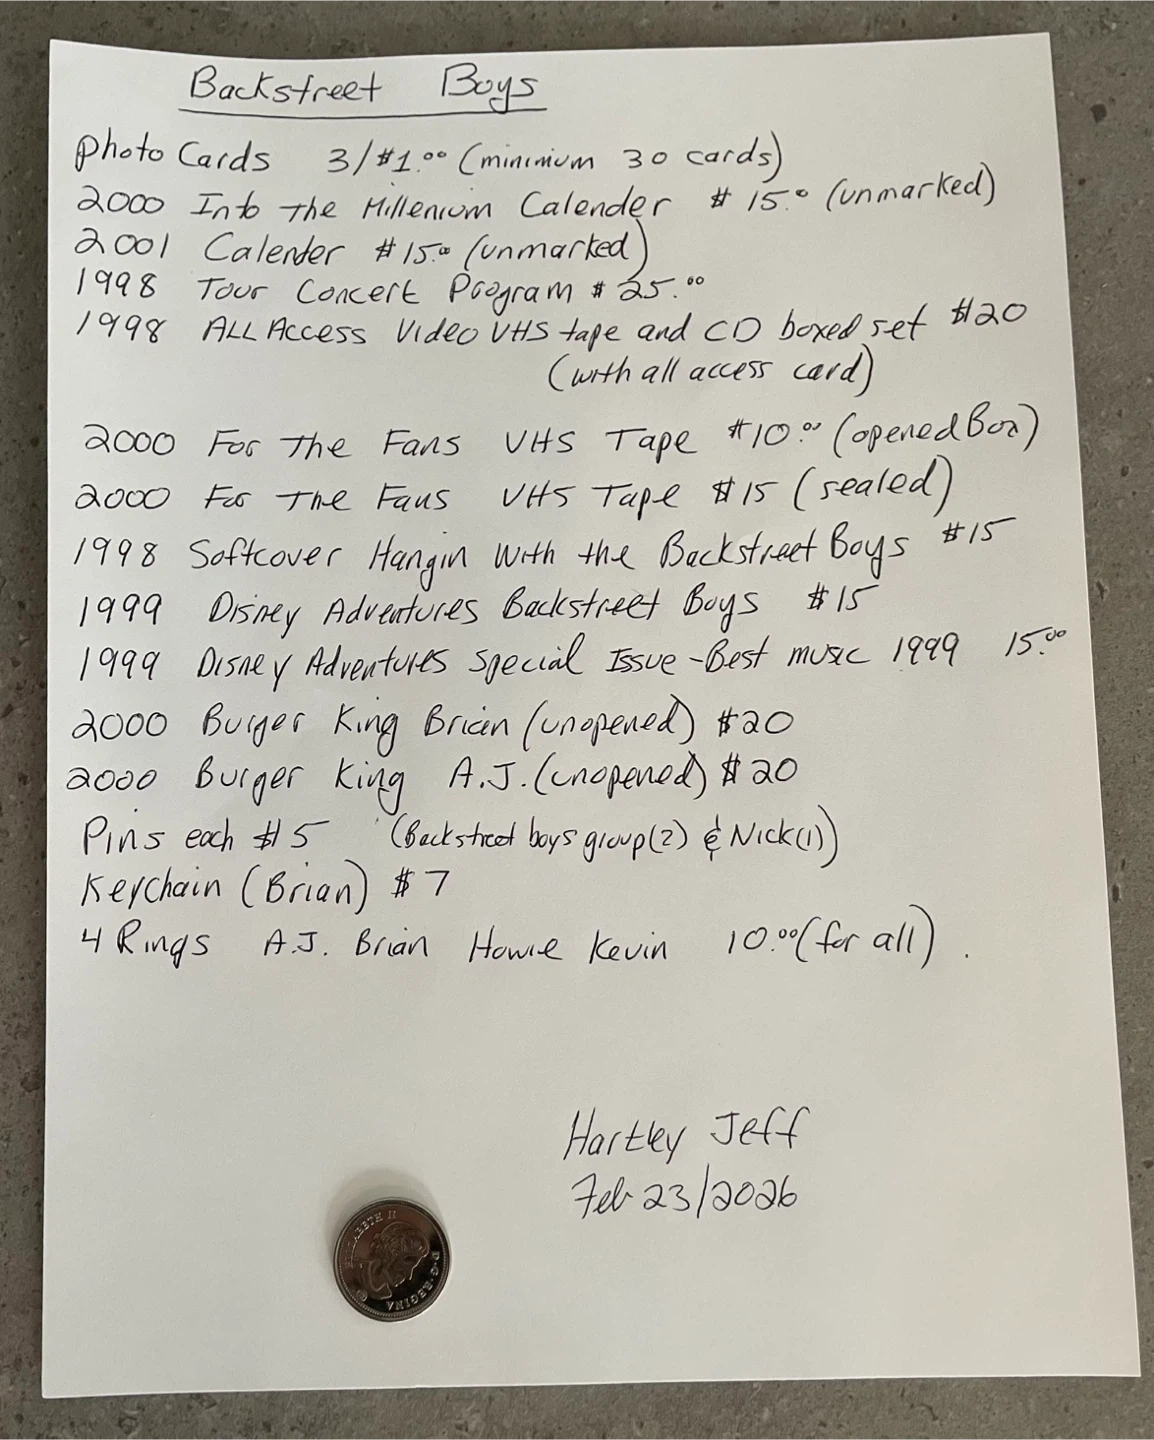 Backstreet Boys
Photo Cards 3/$1.00 (minimum 30 cards)
2000 Into The Millenium Calender $15.00 (unmarked)
2001 Calender $15.00 (unmarked)
1998 Tour Concert Program $25.00
1998 ALL Access Video VHS tape and CD boxed set $20
(with all access card)
2000 For The Fans VHS Tape $10.00 (opened Box)
2000 For The Fans VHS Tape $15 (sealed)
1998 Softcover Hangin With the Backstreet Boys $15
1999 Disney Adventures Backstreet Boys $15
1999 Disney Adventures Special Issue - Best music 1999 15.00
2000 Burger King Brian (unopened) $20
2000 Burger King A.J. (unopened) $20
Pins each $5 (Backstreet boys group(2) & Nick(1))
Keychain (Brian) $7
4 Rings A.J. Brian Howie Kevin 10.00 (for all).
Hartley Jeff
Feb 23/2026
ELIZABETH II
D·G·REGINA